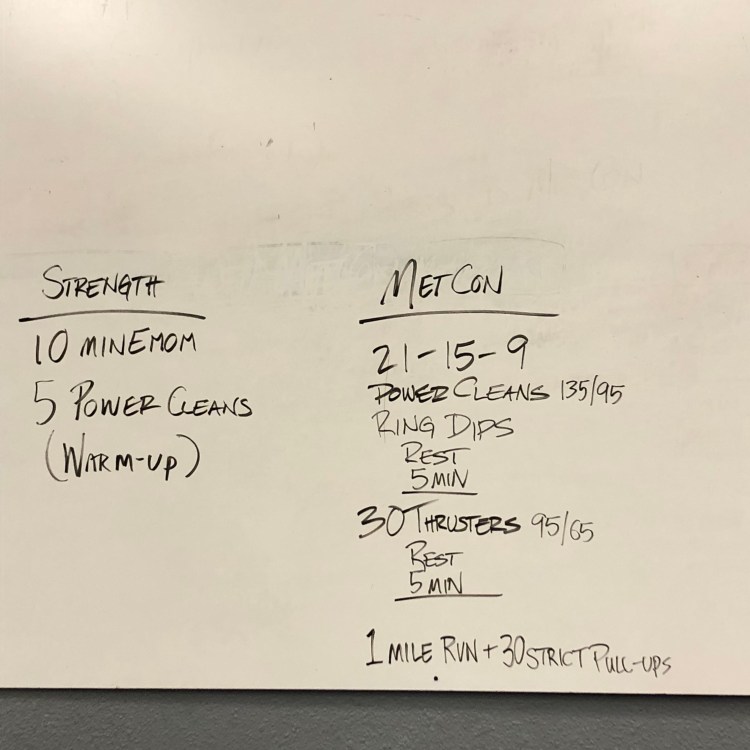 STRENGTH
10 MIN EMOM
5 POWER CLEANS
(WARM-UP)
METCON
21-15-9
POWER CLEANS 135/95
RING DIPS
REST
5 MIN
30 THRUSTERS 95/65
REST
5 MIN
1 MILE RUN + 30 STRICT PULL-UPS